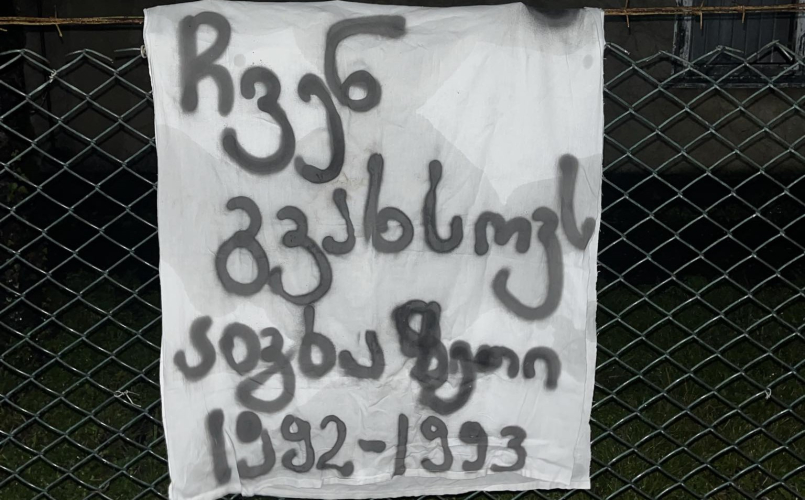 ჩვენ
გვახსოვს
აფხაზეთი
1992-1993